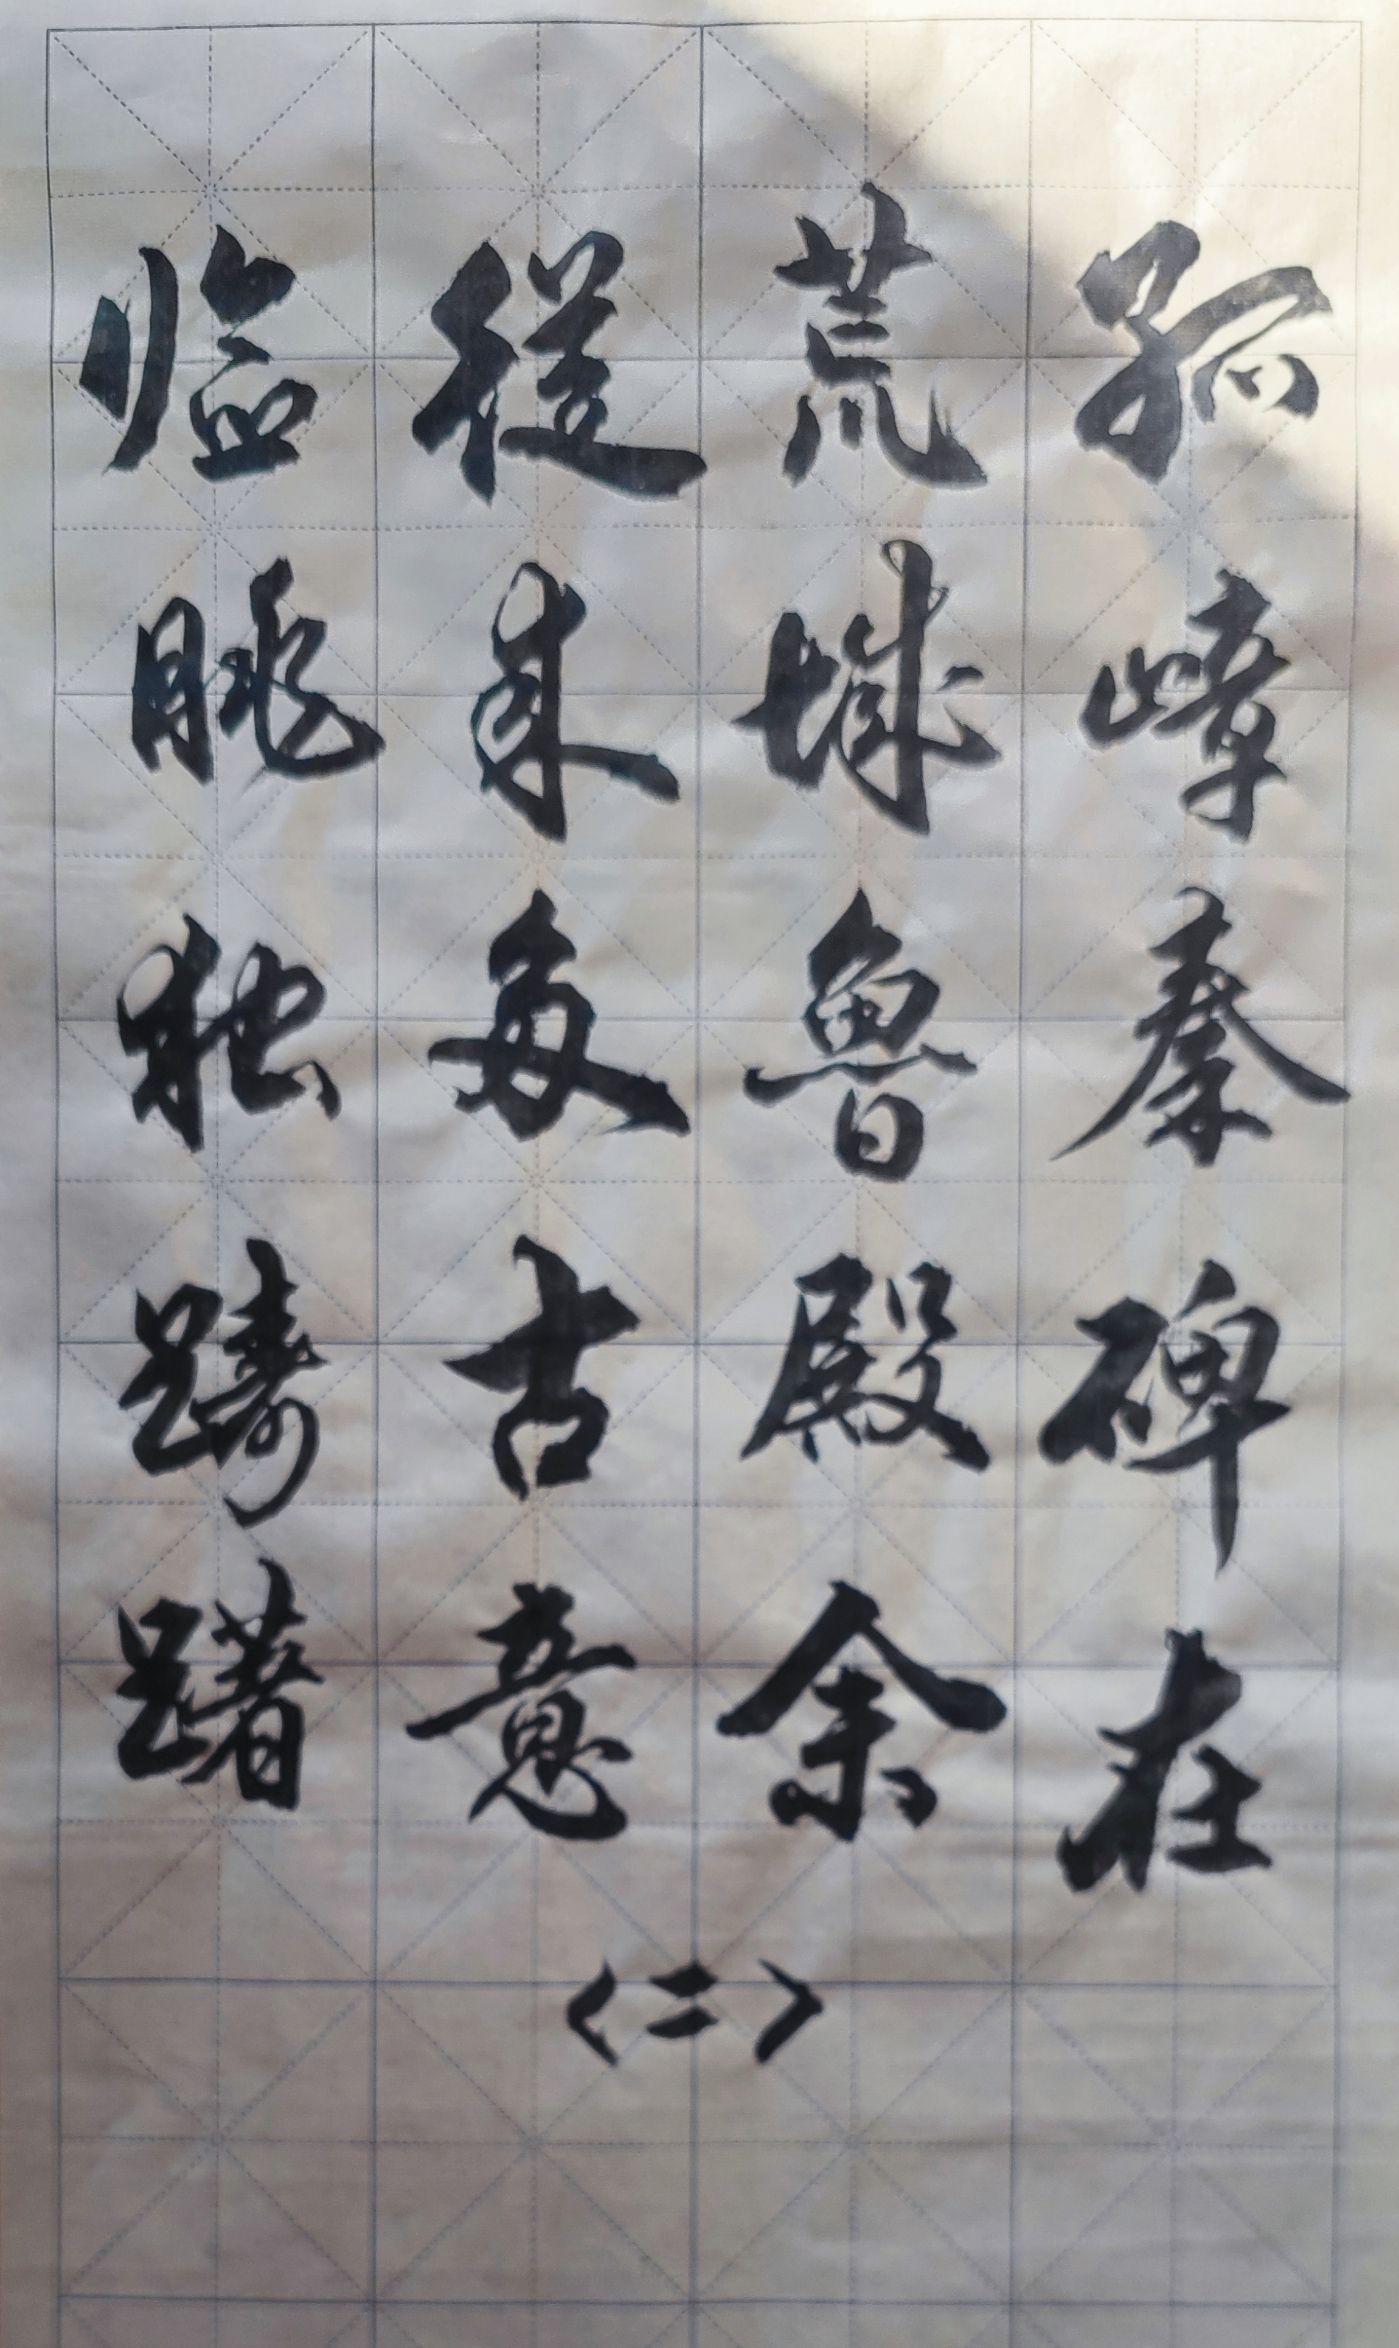 孤嶂秦碑在
荒城鲁殿余
從来多古意
临眺独踌躇
〈二〉